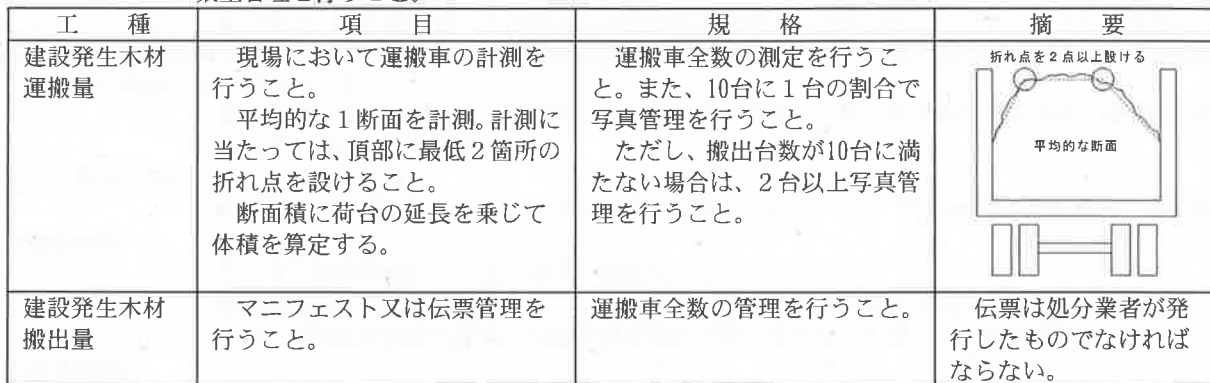 工　種
項　目
規　格
摘　要
建設発生木材
運搬量
　現場において運搬車の計測を
行うこと。
　平均的な１断面を計測。計測に
当たっては、頂部に最低２箇所の
折れ点を設けること。
　断面積に荷台の延長を乗じて
体積を算定する。
　運搬車全数の測定を行うこ
と。また、10台に１台の割合で
写真管理を行うこと。
　ただし、搬出台数が10台に満
たない場合は、２台以上写真管
理を行うこと。
折れ点を２点以上設ける
平均的な断面
建設発生木材
搬出量
　マニフェスト又は伝票管理を
行うこと。
運搬車全数の管理を行うこと。
　伝票は処分業者が発
行したものでなければ
ならない。